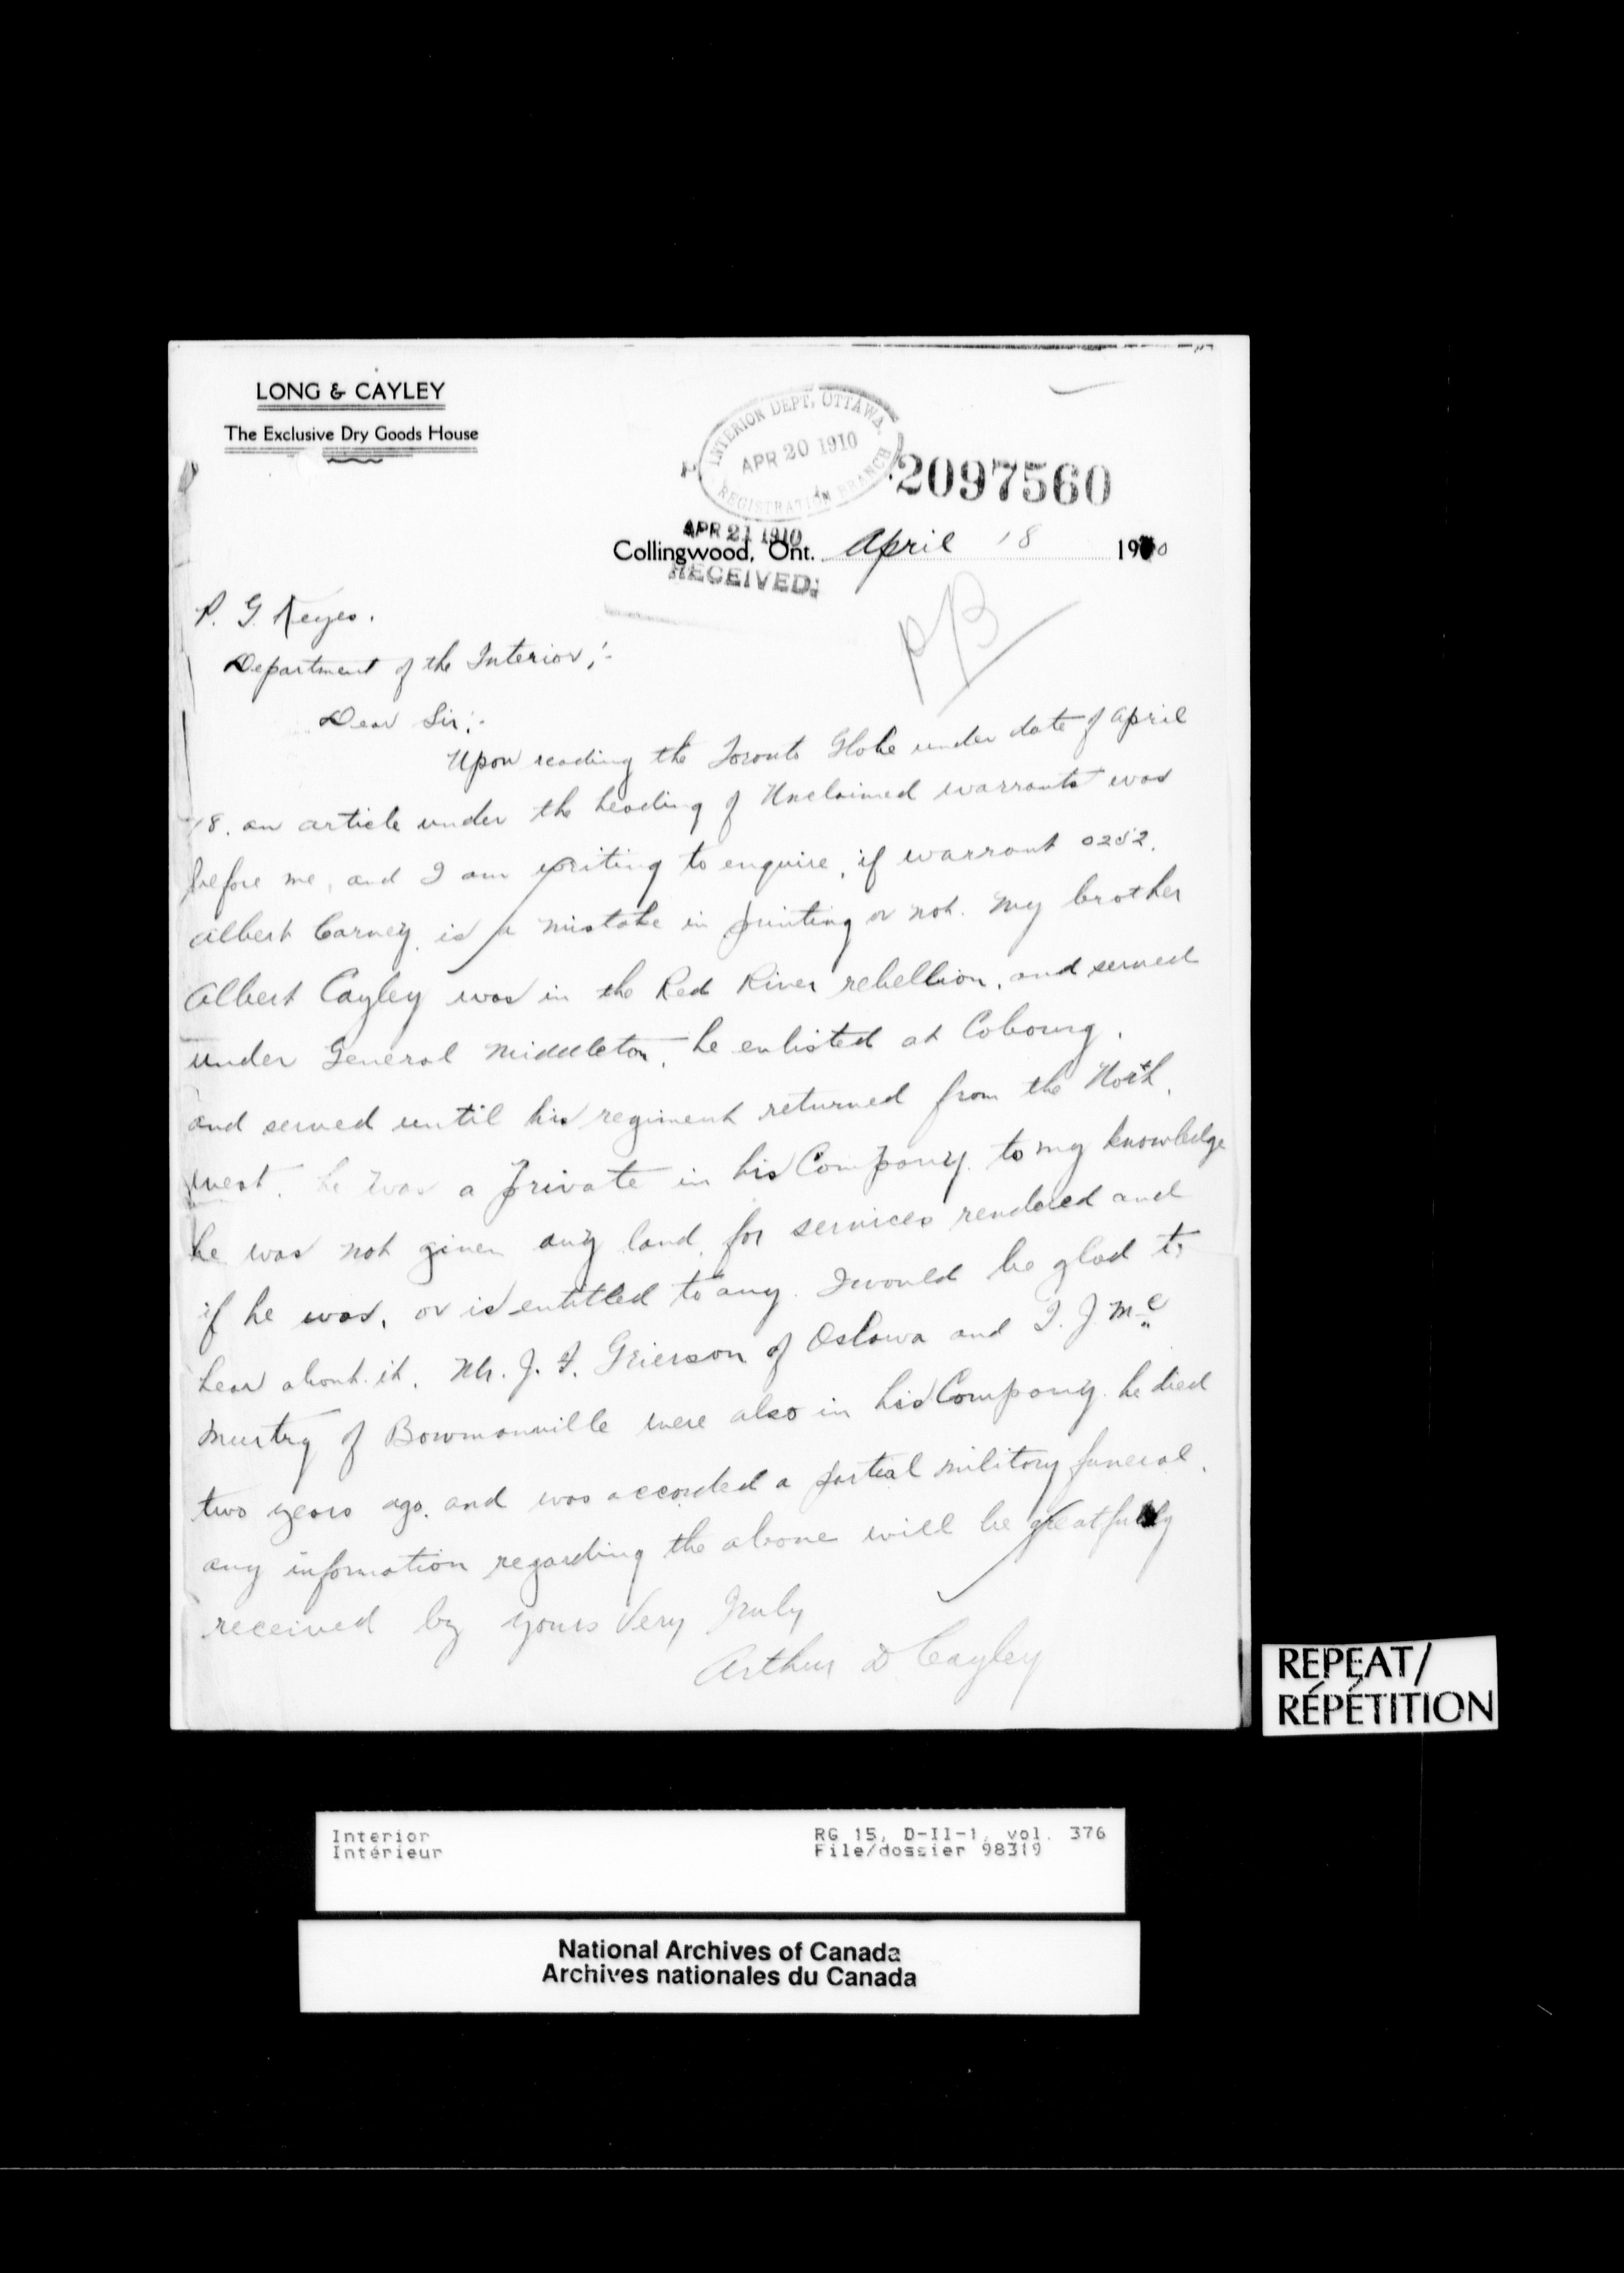 LONG & CAYLEY
The Exclusive Dry Goods House
INTERIOR DEPT, OTTAWA.
APR 20 1910
REGISTRATION BRANCH
2097560
APR 21 1910
Collingwood, Ont. April 18 1910
RECEIVED.
P. G. Keyes.
Department of the Interior;-
Dear Sir:-
Upon reading the Toronto Globe under date of April
18. an article under the heading of Unclaimed warrants was
before me, and I am writing to enquire, if warrant 0252.
Albert Carney, is a mistake in printing or not. My brother
Albert Cayley was in the Red River rebellion, and served
under General Middleton, he enlisted at Cobourg,
and served until his regiment returned from the North,
west, he was a private in his Company. to my knowledge
he was not given any land, for services rendered and
if he was, or is entitled to any. I would be glad to
hear about it. Mr. J. F. Grierson of Oshawa and T. J. Mc
Murtry of Bowmanville were also in his Company. he died
two years ago, and was accorded a partial military funeral,
any information regarding the above will be greatfully
received by yours Very Truly
Arthur D. Cayley
REPEAT/
RÉPÉTITION
Interior RG 15, D-II-1, vol. 376
Intérieur File/dossier 98319
National Archives of Canada
Archives nationales du Canada